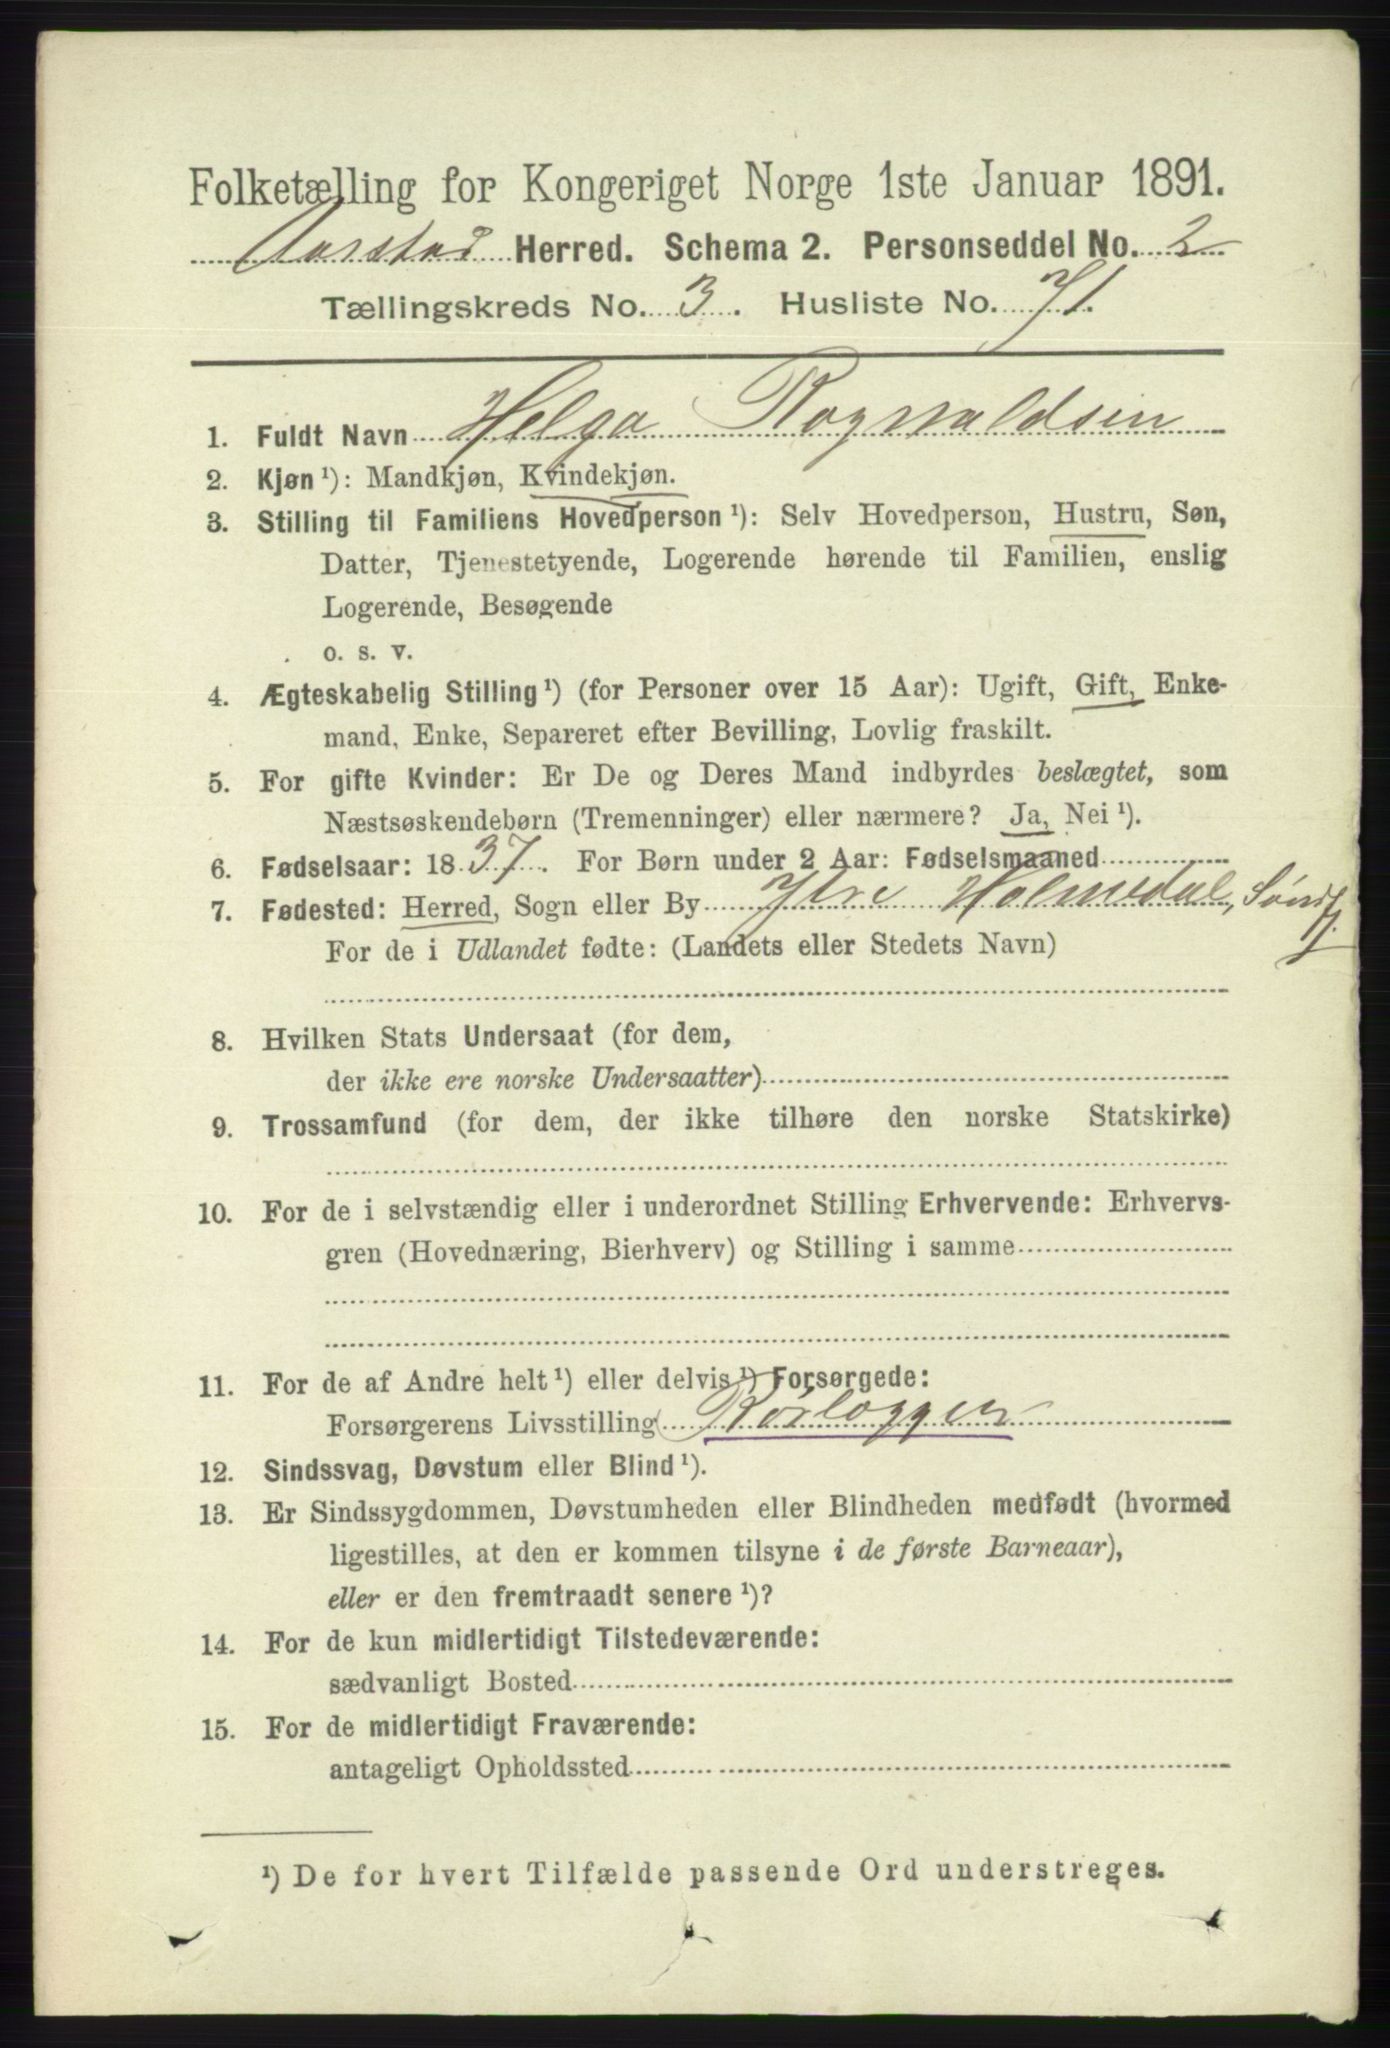 Folketælling for Kongeriget Norge 1ste Januar 1891.
Aarstad Herred. Schema 2. Personseddel No. 2
Tællingskreds No. 3. Husliste No. 71.
1. Fuldt Navn Helga Rognaldsen
2. Kjøn ¹): Mandkjøn, Kvindekjøn.
3. Stilling til Familiens Hovedperson ¹): Selv Hovedperson, Hustru, Søn,
Datter, Tjenestetyende, Logerende hørende til Familien, enslig
Logerende, Besøgende
o. s. v.
4. Ægteskabelig Stilling ¹) (for Personer over 15 Aar): Ugift, Gift, Enke-
mand, Enke, Separeret efter Bevilling, Lovlig fraskilt.
5. For gifte Kvinder: Er De og Deres Mand indbyrdes beslægtet, som
Næstsøskendebørn (Tremenninger) eller nærmere? Ja, Nei ¹).
6. Fødselsaar: 1837. For Børn under 2 Aar: Fødselsmaaned
7. Fødested: Herred, Sogn eller By Ytre Holmedal, Søndf.
For de i Udlandet fødte: (Landets eller Stedets Navn)
8. Hvilken Stats Undersaat (for dem,
der ikke ere norske Undersaatter)
9. Trossamfund (for dem, der ikke tilhøre den norske Statskirke)
10. For de i selvstændig eller i underordnet Stilling Erhvervende: Erhvervs-
gren (Hovednæring, Bierhverv) og Stilling i samme
11. For de af Andre helt ¹) eller delvis ¹) Forsørgede:
Forsørgerens Livsstilling Rørlægger
12. Sindssvag, Døvstum eller Blind ¹).
13. Er Sindssygdommen, Døvstumheden eller Blindheden medfødt (hvormed
ligestilles, at den er kommen tilsyne i de første Barneaar),
eller er den fremtraadt senere ¹)?
14. For de kun midlertidigt Tilstedeværende:
sædvanligt Bosted
15. For de midlertidigt Fraværende:
antageligt Opholdssted
¹) De for hvert Tilfælde passende Ord understreges.